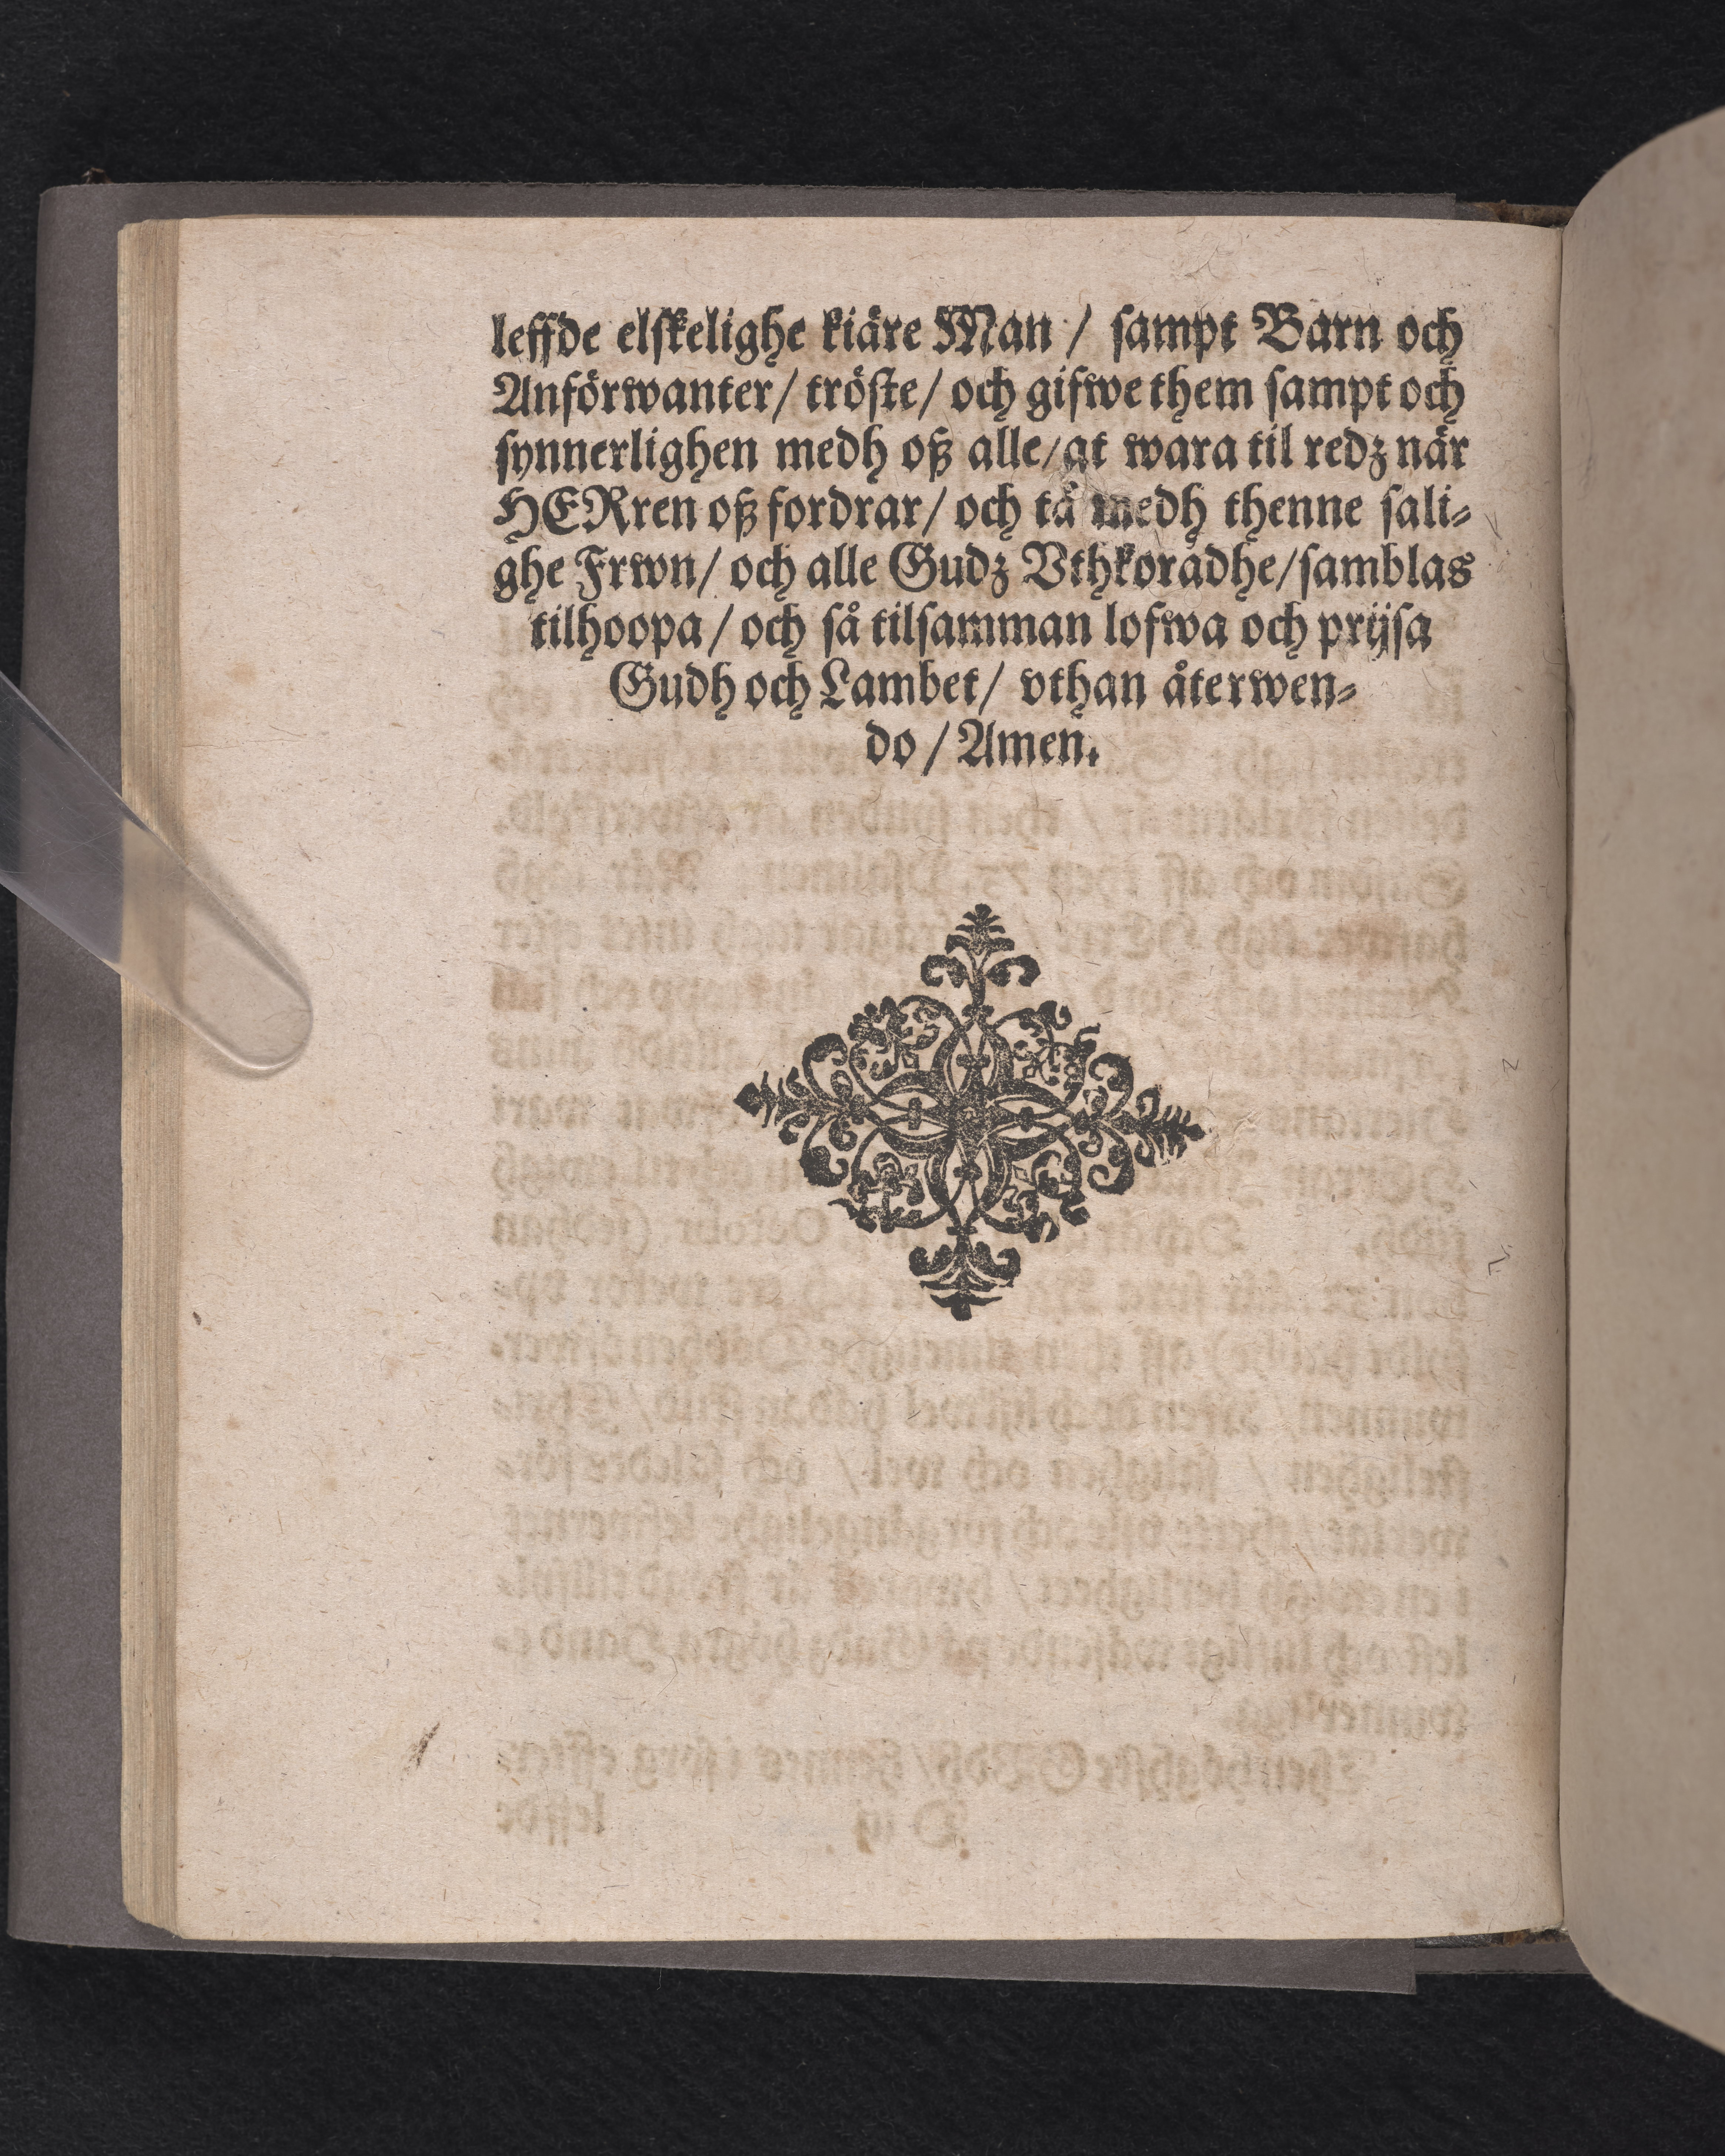 leffde elskelighe kiäre Man / sampt Barn och
Anförwanter / tröste / och gifwe them sampt och
synnerlighen medh oß alle / at wara til redz när
HERren oß fordrar / och tå medh thenne sali-
ghe Frwn / och alle Gudz Vthkoradhe / samblas
tilhoopa / och så tilsamman lofwa och prijsa
Gudh och Lambet / vthan återwen-
do / Amen.